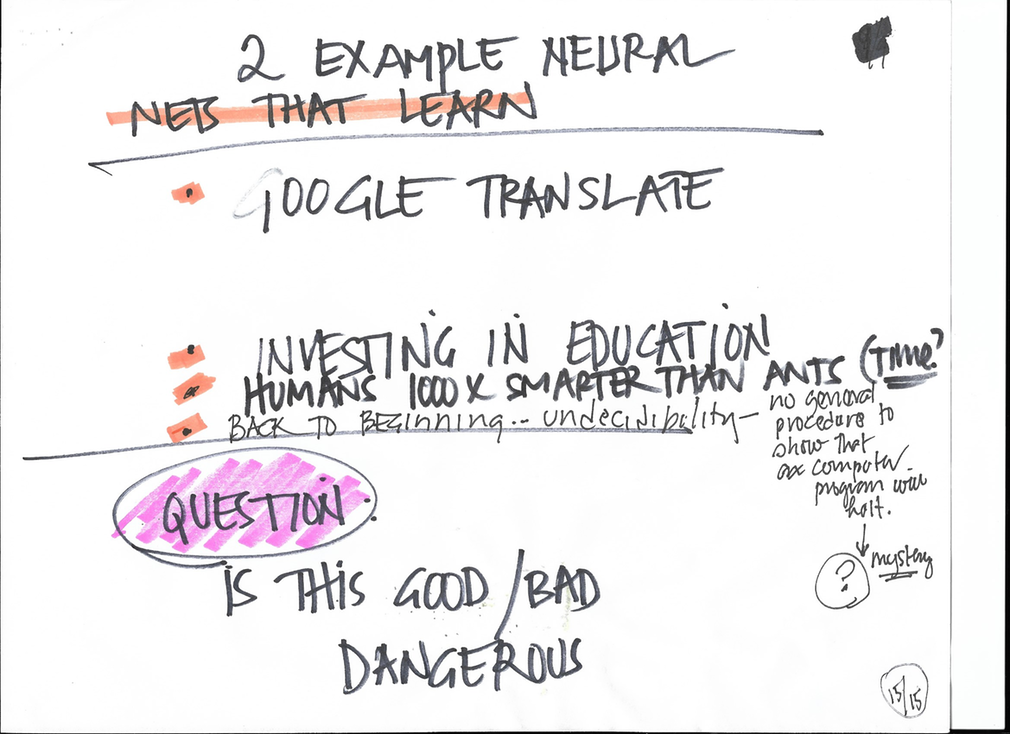 2 EXAMPLE NEURAL
NETS THAT LEARN
• GOOGLE TRANSLATE
• INVESTING IN EDUCATION
• HUMANS 1000X SMARTER THAN ANTS (TIME?
• BACK TO BEGINNING... undecisibility-
no general
procedure to
show that
computer
program will
halt.
mystery
?
QUESTION:
IS THIS GOOD/BAD
DANGEROUS
15/15